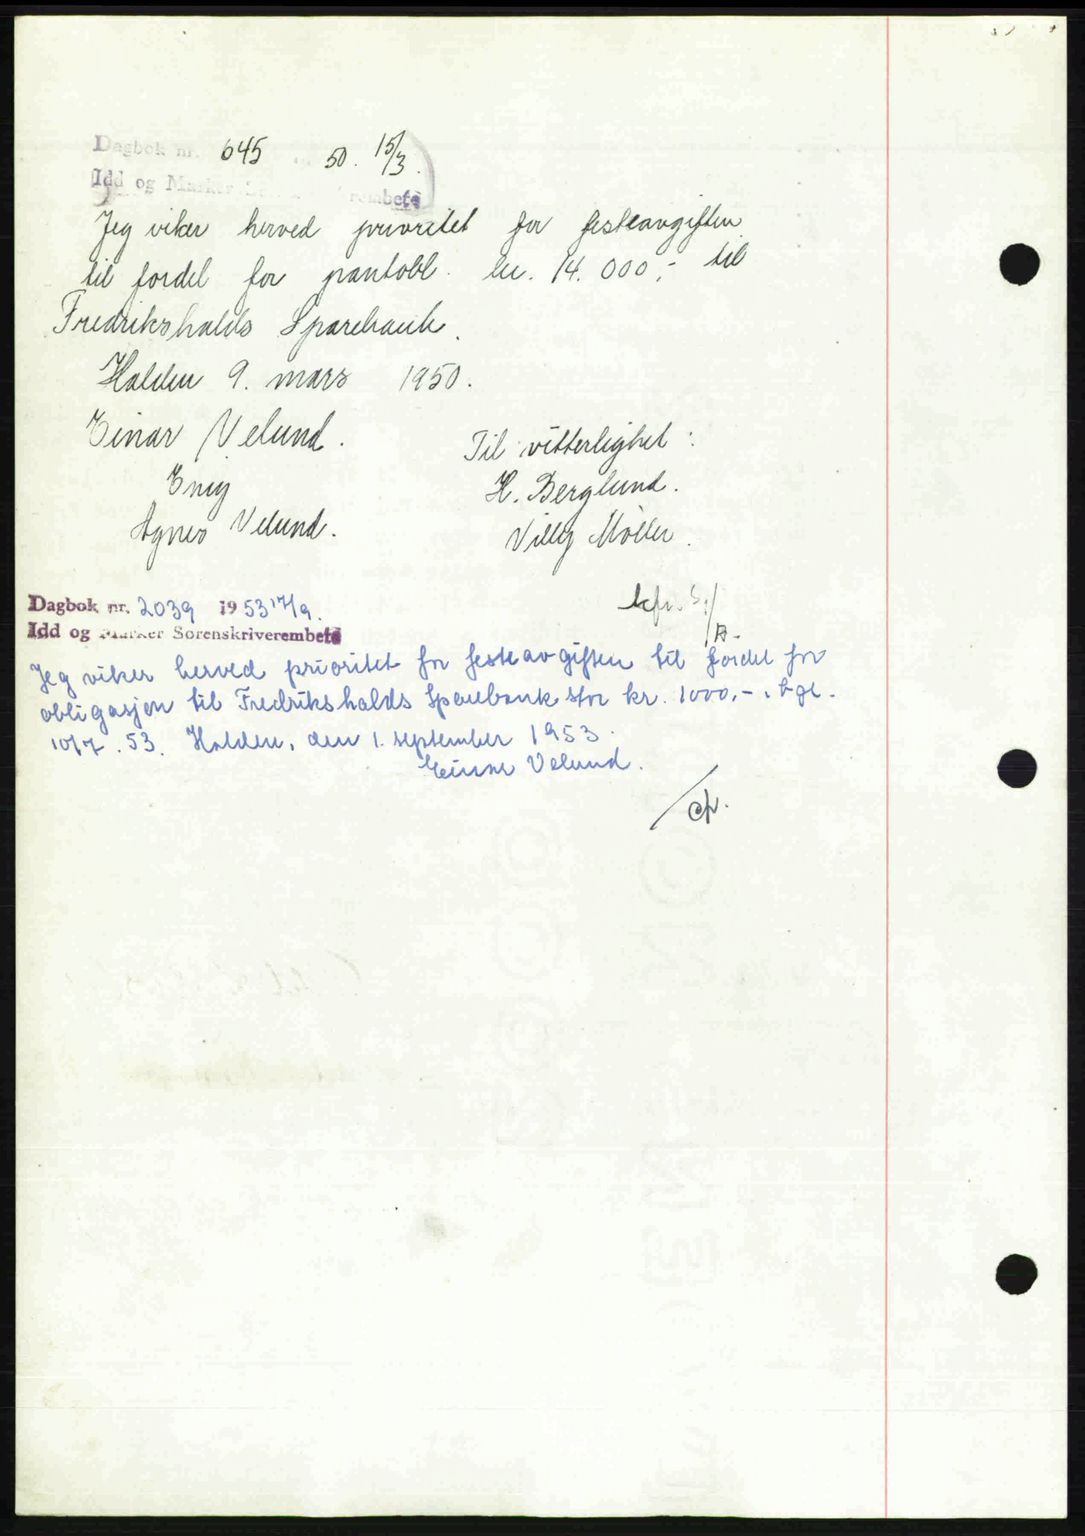 Dagbok nr. 645 50. 15/3.
Idd og Marker Sorenskriverembete
Jeg viker herved prioritet for festeavgiften
til fordel for pantobl. kr. 14.000,- til
Fredrikshalds Sparebank.
Halden 9. mars 1950.
Einar Velund.
Enig
Agnes Velund.
Til vitterlighet:
H. Berglund.
Villy Møller.
Dagbok nr. 2039 1953 17/9.
Idd og Marker Sorenskriverembete
Jeg viker herved prioritet for festeavgiften til fordel for
obligasjon til Fredrikshalds Sparebank stor kr. 1000,-, tgl.
10/7.53. Halden, den 1. september 1953.
Einar Velund.